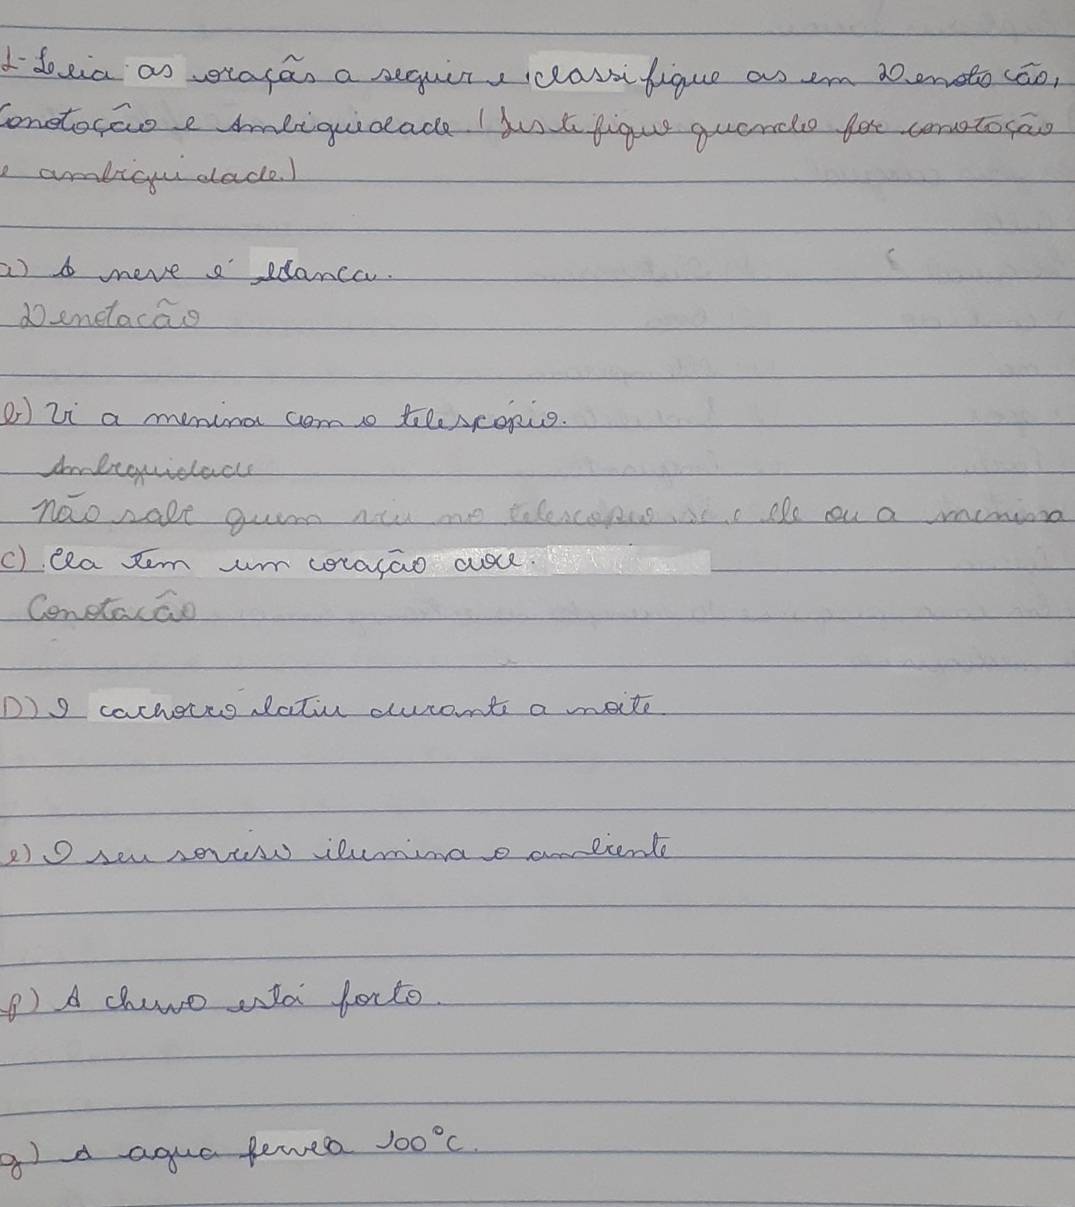 1- Leia as oração a seguir e classifique as em Denotocão,
Conotoção e Ambiguidade (Justifique quando for conotoção
e ambiguidade.)
a) A neve é branca.
Denotacão
b) Vi a menina com o telescópio.
Ambiguidade
não sabe quem viu no telescopio se e ele ou a menina
c) Ela tem um coração
Conotacão
D) O cachorro latiu durante a noite.
e) O seu sorriso ilumina o ambiente
f) A chuva está forte.
g) A agua ferve a 100°C.